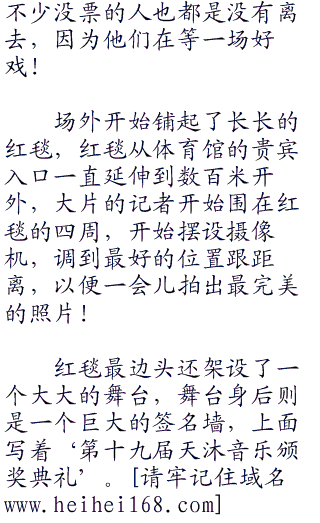 不少没票的人也都是没有离
去，因为他们在等一场好
戏！
场外开始铺起了长长的
红毯，红毯从体育馆的贵宾
入口一直延伸到数百米开
外，大片的记者开始围在红
毯的四周，开始摆设摄像
机，调到最好的位置跟距
离，以便一会儿拍出最完美
的照片！
红毯最边头还架设了一
个大大的舞台，舞台身后则
是一个巨大的签名墙，上面
写着‘第十九届天沐音乐颁
奖典礼’。[请牢记住域名
www.heihei168.com]